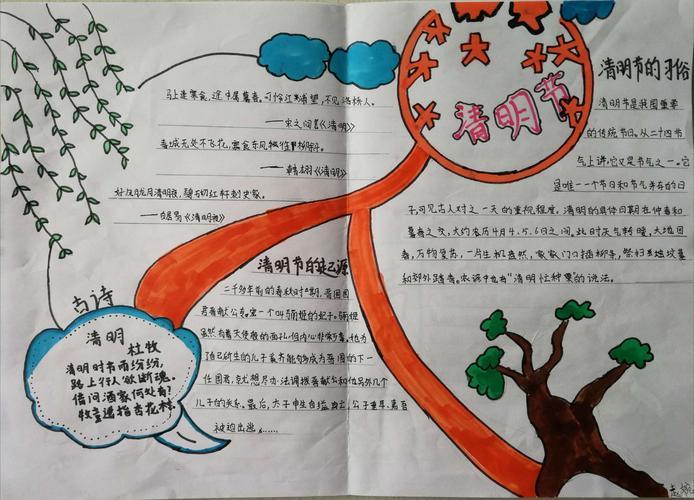 马上逢寒食,途中属暮春。可怜江浦望,不见洛桥人。
——宋之问《清明》
春城无处不飞花,寒食东风御柳斜。
——韩翃《清明》
好风胧月清明夜,碧砌红轩刺史家。
——白居易《清明夜》
清明节
清明节的习俗
清明节是我国重要
的传统节日。从二十四节
气上讲,它又是节气之一。它
是唯一一个节日和节气并存的日
子,可见古人对之一天的重视程度。清明的具体日期在仲春和
暮春之交,大约农历4月4、5、6日之间,此时天气转暖,大地回
春,万物复苏,一片生机盎然,家家门口插柳条,祭扫坟墓
和郊外踏青。农谚中也有"清明忙种粟"的说法。
清明节的起源
二千多年前的春秋时期,晋国国
君晋献公
一个叫骊姬的妃子。骊姬
虽然有着天使般的面孔,但内心非常歹毒。她为
了自己所生的儿子奚齐能够成为晋国的下一
任国君,就想尽办法调拨晋献公和他另外几个
儿子的关系。最后,太子申生自缢身亡,公子重耳、夷吾
被迫出逃......
古诗
清明
杜牧
清明时节雨纷纷,
路上行人欲断魂。
借问酒家何处有?
牧童遥指杏花村